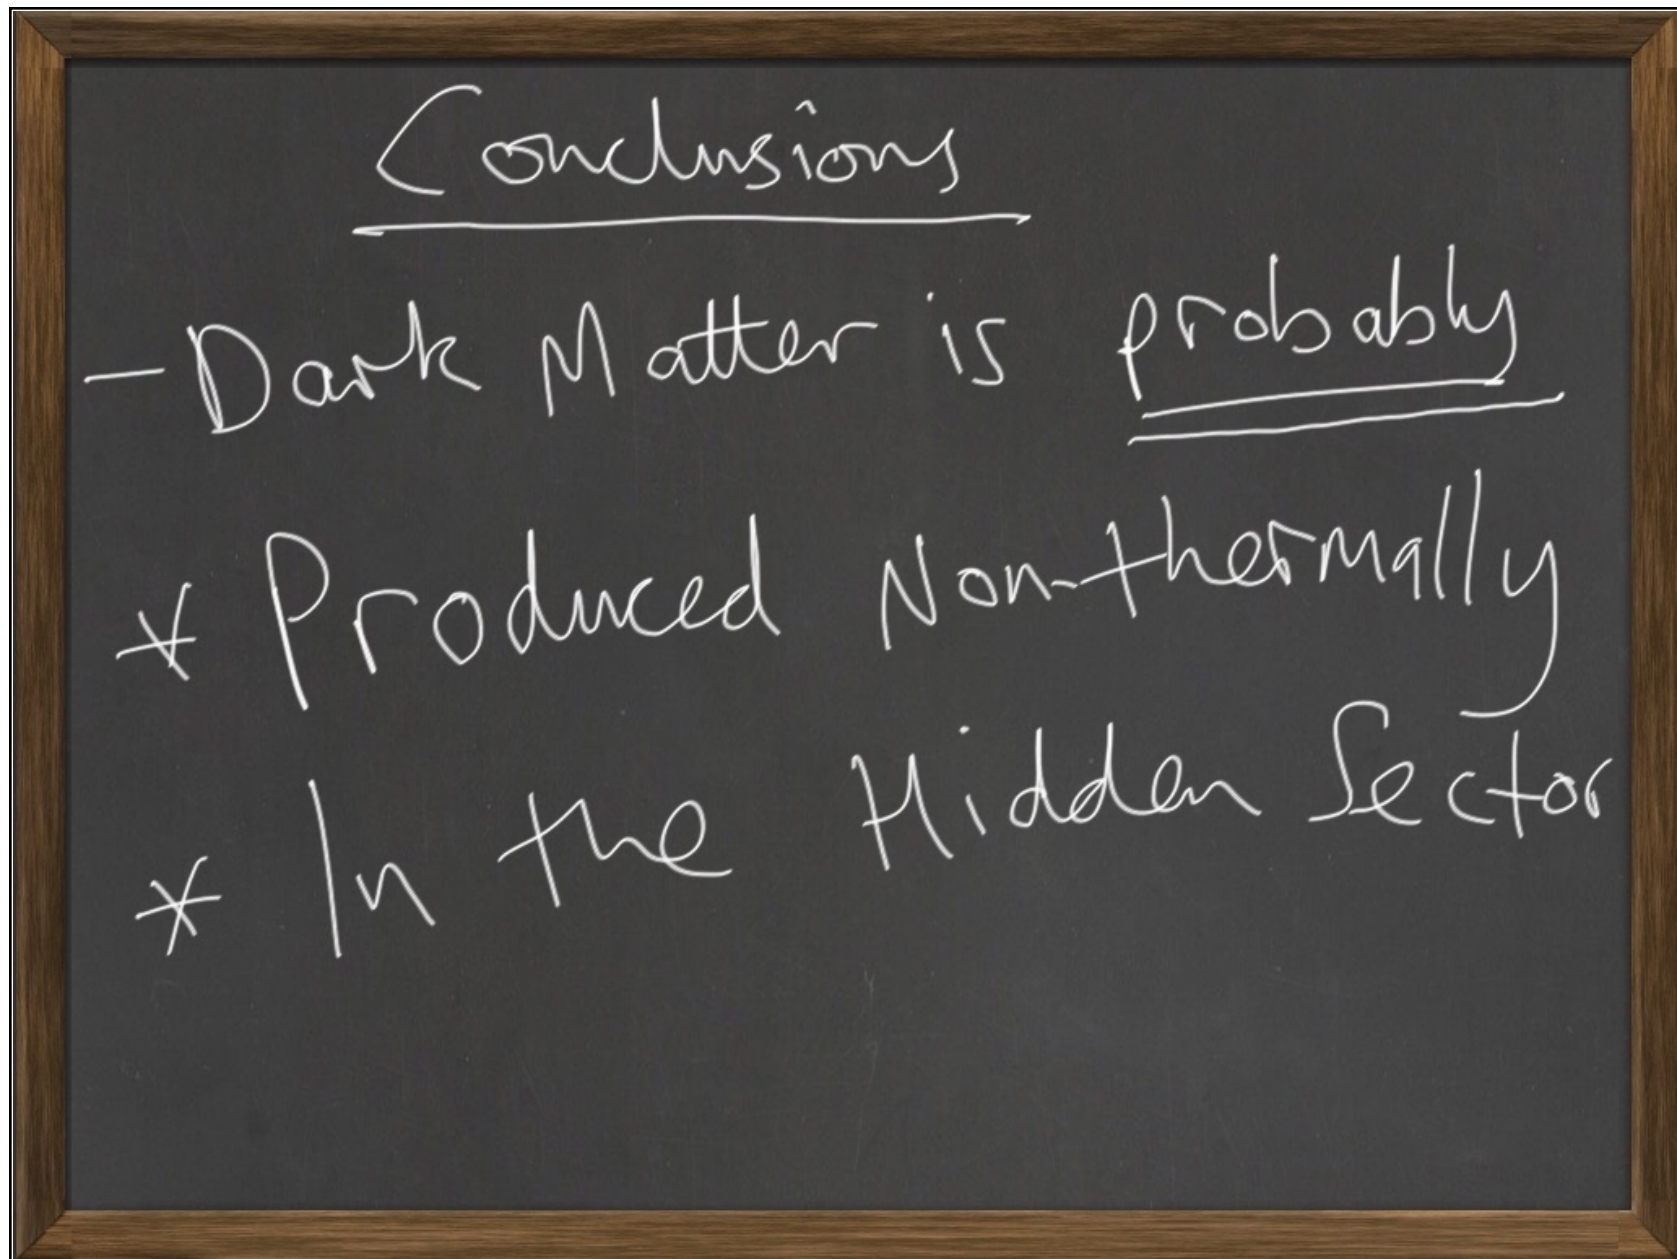 Conclusions
- Dark Matter is probably
* Produced Non-thermally
* In the Hidden Sector